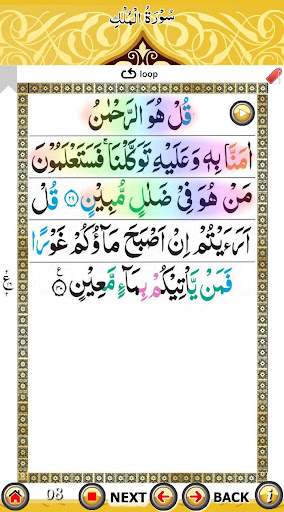 سُوْرَةُ الْمُلْكِ
loop
قُلْ هُوَ الرَّحْمٰنُ
اٰمَنَّا بِهٖ وَعَلَيْهِ تَوَكَّلْنَا ۚ فَسَتَعْلَمُوْنَ
مَنْ هُوَ فِيْ ضَلٰلٍ مُّبِيْنٍ ﴿۲۹﴾ قُلْ
اَرَءَيْتُمْ اِنْ اَصْبَحَ مَآؤُكُمْ غَوْرًا
فَمَنْ يَّاْتِيْكُمْ بِمَآءٍ مَّعِيْنٍ ﴿۳۰﴾
08 NEXT BACK i